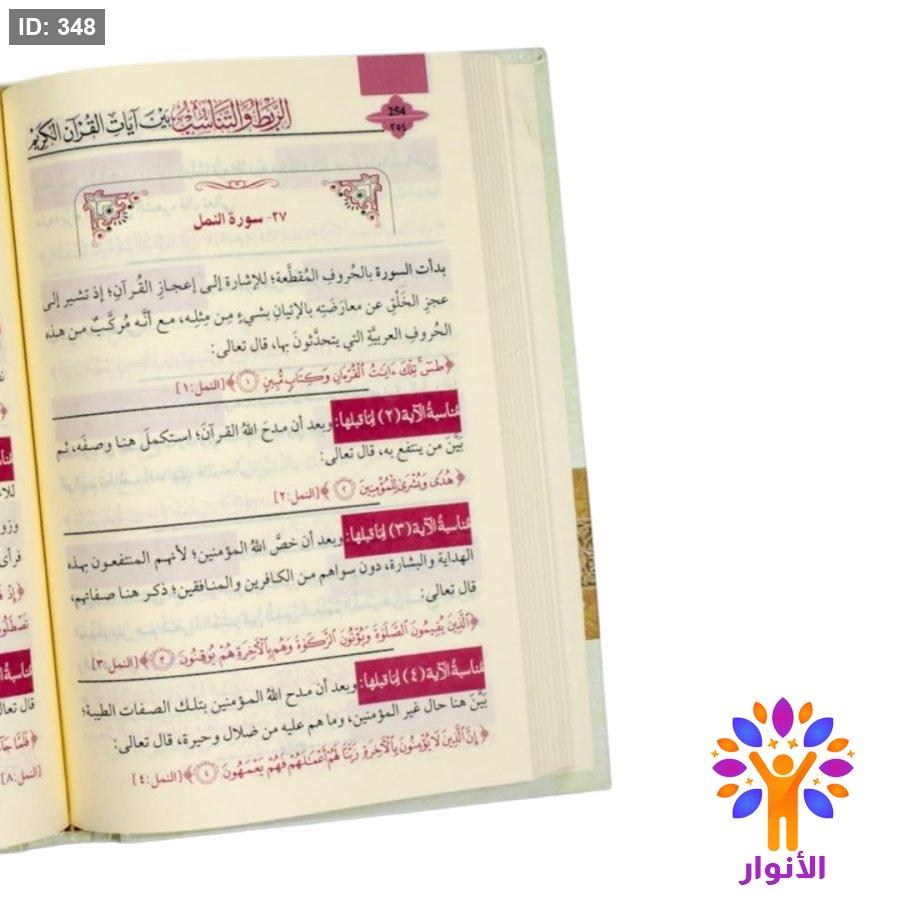 ID: 348
254
٢٥٤
الربط والتناسب بين آيات القرآن الكريم
٢٧- سورة النمل
بدأت السورة بالحُروفِ المُقطَّعة؛ للإشارة إلى إعجازِ القُرآنِ؛ إذ تشير إلى
عجزِ الخَلْقِ عن معارَضَتِه بالإتيانِ بشيءٍ مِن مِثلِه، مع أنَّه مُركَّبٌ من هذه
الحُروفِ العربيَّةِ التي يتحدَّثونَ بها، قال تعالى:
﴿طسٓ ۚ تِلْكَ ءَايَٰتُ ٱلْقُرْءَانِ وَكِتَابٍ مُّبِينٍ ﴿١﴾﴾ [النمل:١]
مناسبةُ الآية (٢) لِمَا قبلها: وبعد أن مدحَ اللهُ القرآنَ؛ استكملَ هنا وصفَه، ثم
بيَّنَ من ينتفع به، قال تعالى:
﴿هُدًى وَبُشْرَىٰ لِلْمُؤْمِنِينَ ﴿٢﴾﴾ [النمل:٢]
مناسبةُ الآية (٣) لِمَا قبلها: وبعد أن خصَّ اللهُ المؤمنين؛ لأنهم المنتفعون بهذه
الهداية والبشارة، دون سواهم من الكافرين والمنافقين؛ ذكر هنا صفاتهم،
قال تعالى:
﴿ٱلَّذِينَ يُقِيمُونَ ٱلصَّلَوٰةَ وَيُؤْتُونَ ٱلزَّكَوٰةَ وَهُم بِٱلْآخِرَةِ هُمْ يُوقِنُونَ ﴿٣﴾﴾ [النمل:٣]
مناسبةُ الآية (٤) لِمَا قبلها: وبعد أن مدح اللهُ المؤمنين بتلك الصفات الطيبة؛
بيَّنَ هنا حال غير المؤمنين، وما هم عليه من ضلال وحيرة، قال تعالى:
﴿إِنَّ ٱلَّذِينَ لَا يُؤْمِنُونَ بِٱلْآخِرَةِ زَيَّنَّا لَهُمْ أَعْمَٰلَهُمْ فَهُمْ يَعْمَهُونَ ﴿٤﴾﴾ [النمل:٤]
[النمل:٨]
الأنوار